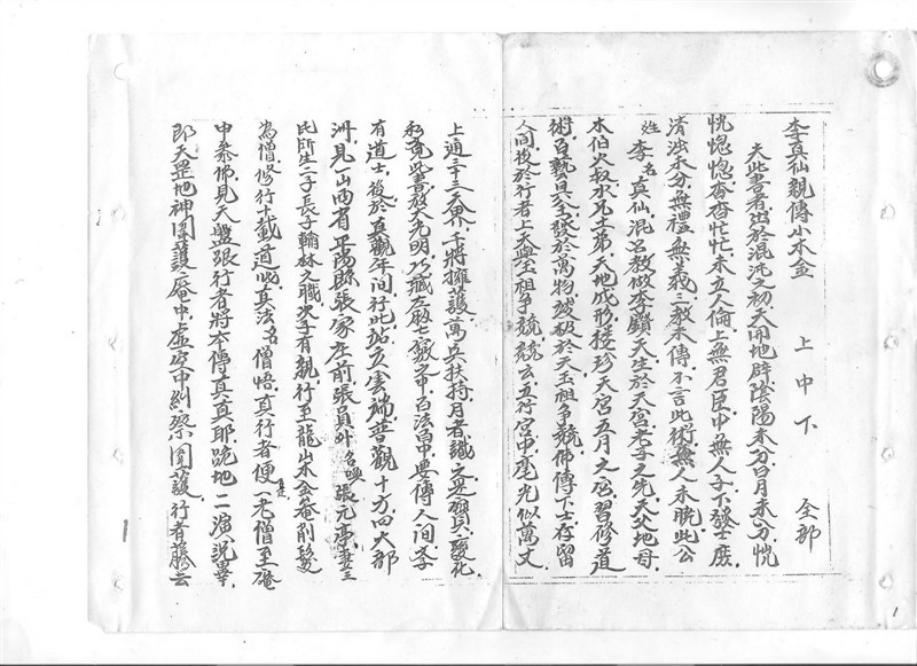 李真仙親傳小木金　上中下　全部
夫此書者出於混沌之初天開地辟陰陽未分日月未分恍
恍惚惚杳杳忙忙未立人倫上無君臣中無人子下發士庶
清浊未分無禮無義三教未傳不言此術無人未晓此公
姓李名真仙混名教做李鎖天生於天宮老子之先天父地母
木伯火叔水兄土弟天地成形接珍天宮五月之宮習修道
術百藝具全發於萬物 於天玉祖爭競佛傳下士存留
人間後於行者上天盤玉祖爭競競云五行宮中毫光似萬丈
上通三十三天界 將擁護寫兵扶持月者識之是寶變化
乾 此書放大光明 藏在殿七竅之中百法皆中要傳人間
有道士後於貞觀年間行此站立雲端普觀十方四大部
洲見一山西省平陽縣張家庄前張員外名喚張元亭妻王
氏所生二子長子翰林之職次子有親行至龍山木金庵削髮
為僧修行十載道 真法名僧悟真行者便 老僧至庵
中參佛見天盤跟行者將本傳真真耶跪地二 說畢
即天罡地神圍護庵中虛空中糾察圍護行者 云
1